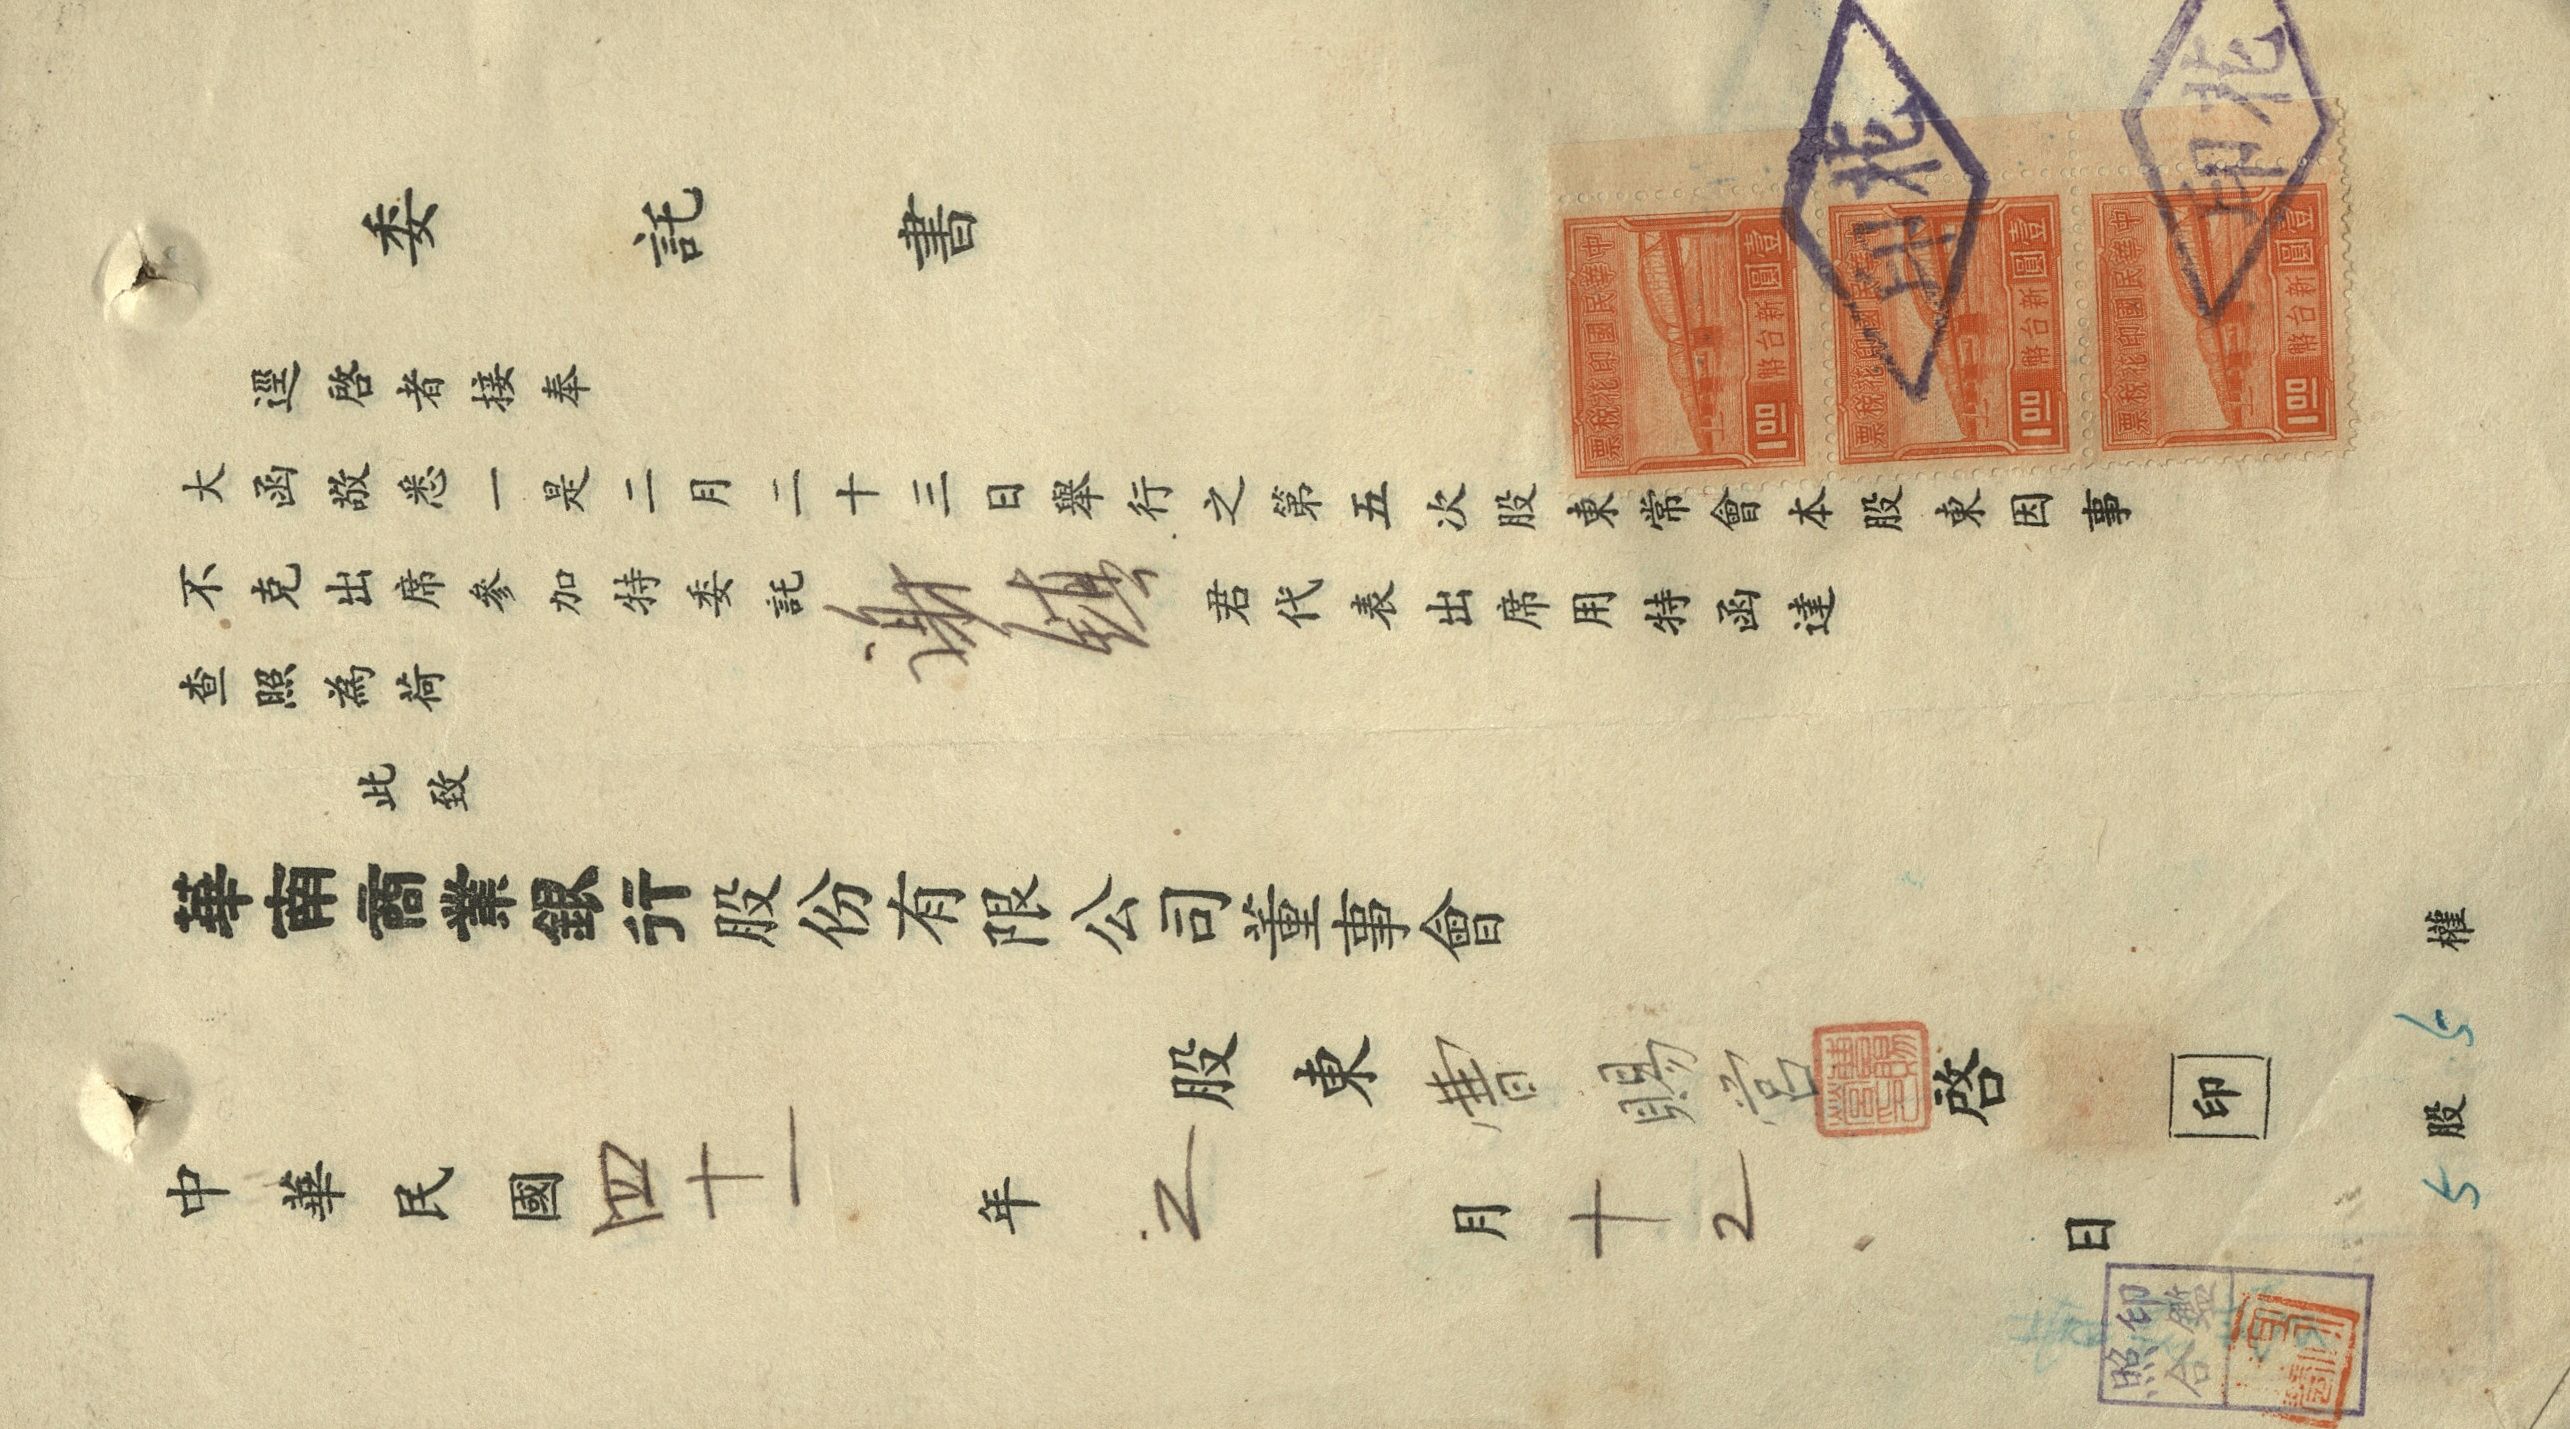 委託書
逕啓者接奉
大函敬悉一是二月二十三日舉行之第五次股東常會本股東因事
不克出席參加特委託謝鎮君代表出席用特函達
查照為荷
此致
華南商業銀行股份有限公司董事會
股東唐賜宮啓
印
中華民國四十一年2月十2日
5股5權
中華民國印花稅票
壹圓
新台幣
1.00
中華民國印花稅票
壹圓
新台幣
1.00
中華民國印花稅票
壹圓
新台幣
1.00
印花
印花
印鑑
照合